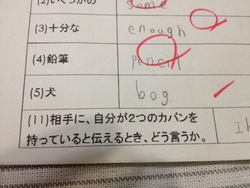 (2)いくつかの some
(3)十分な enough
(4)鉛筆 pencil
(5)犬 bog
(11)相手に、自分が2つのカバンを
持っていると伝えるとき、どう言うか。 I h